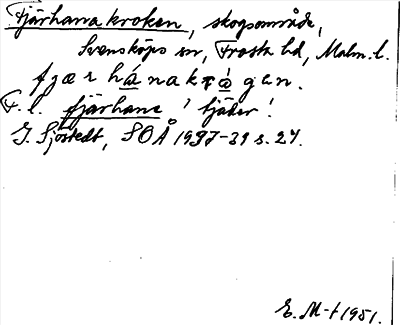 Fjärhanakroken, skogsområde,
Svensköps sn, Frosta hd, Malm. l.
fjærhánakrágen.
F. l. fjärhane 'tjäder'.
G. Sjöstedt, SOÅ 1937-39 s. 27.
E. M-t 1951.